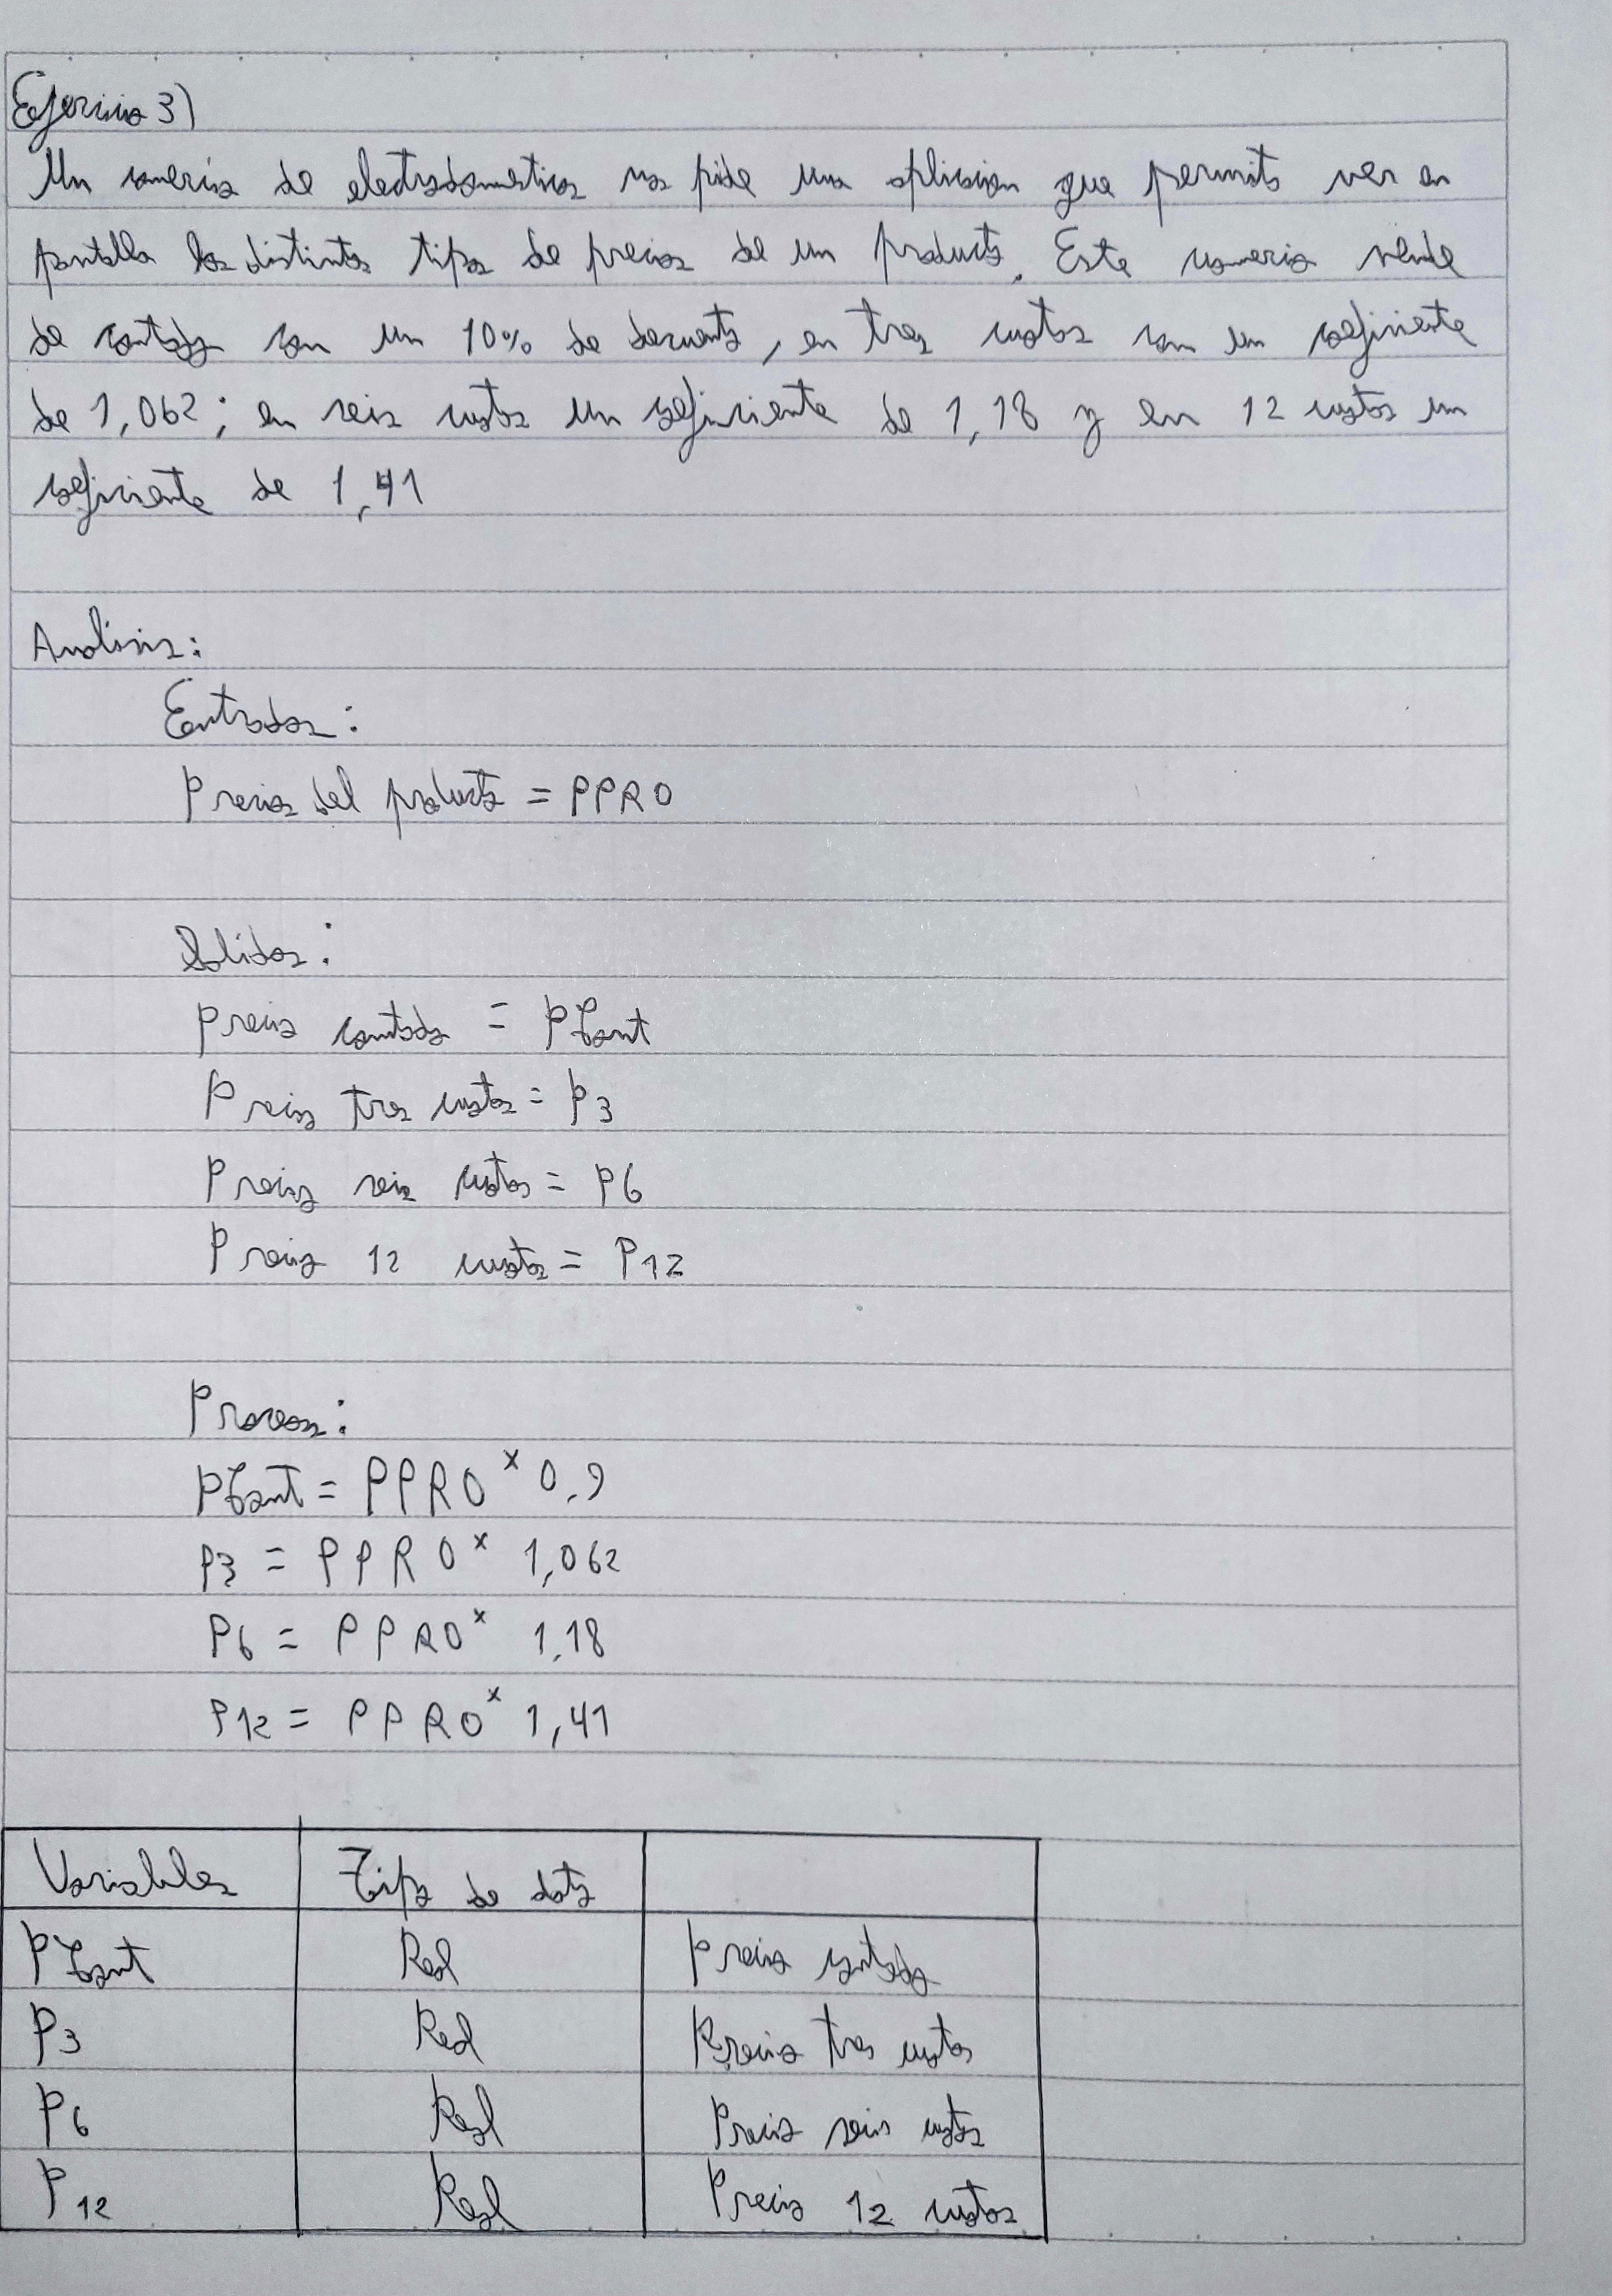 Ejercicio 3)
Un comercio de electrodomesticos nos pide una aplicacion que permita ver en
pantalla los distintos tipos de precios de un producto. Este comercio vende
de contado con un 10% de descuento, en tres cuotas con un coeficiente
de 1,062; en seis cuotas un coeficiente de 1,18 y en 12 cuotas un
coeficiente de 1,41
Analisis:
Entradas:
Precios del producto = PPRO
Salidas:
Precio contado = PCont
Precio tres cuotas = P3
Precio seis cuotas = P6
Precio 12 cuotas = P12
Proceso:
PCont = PPRO x 0,9
P3 = PPRO x 1,062
P6 = PPRO x 1,18
P12 = PPRO x 1,41
Variables Tipo de dato
PCont Real Precio contado
P3 Real Precio tres cuotas
P6 Real Precio seis cuotas
P12 Real Precio 12 cuotas